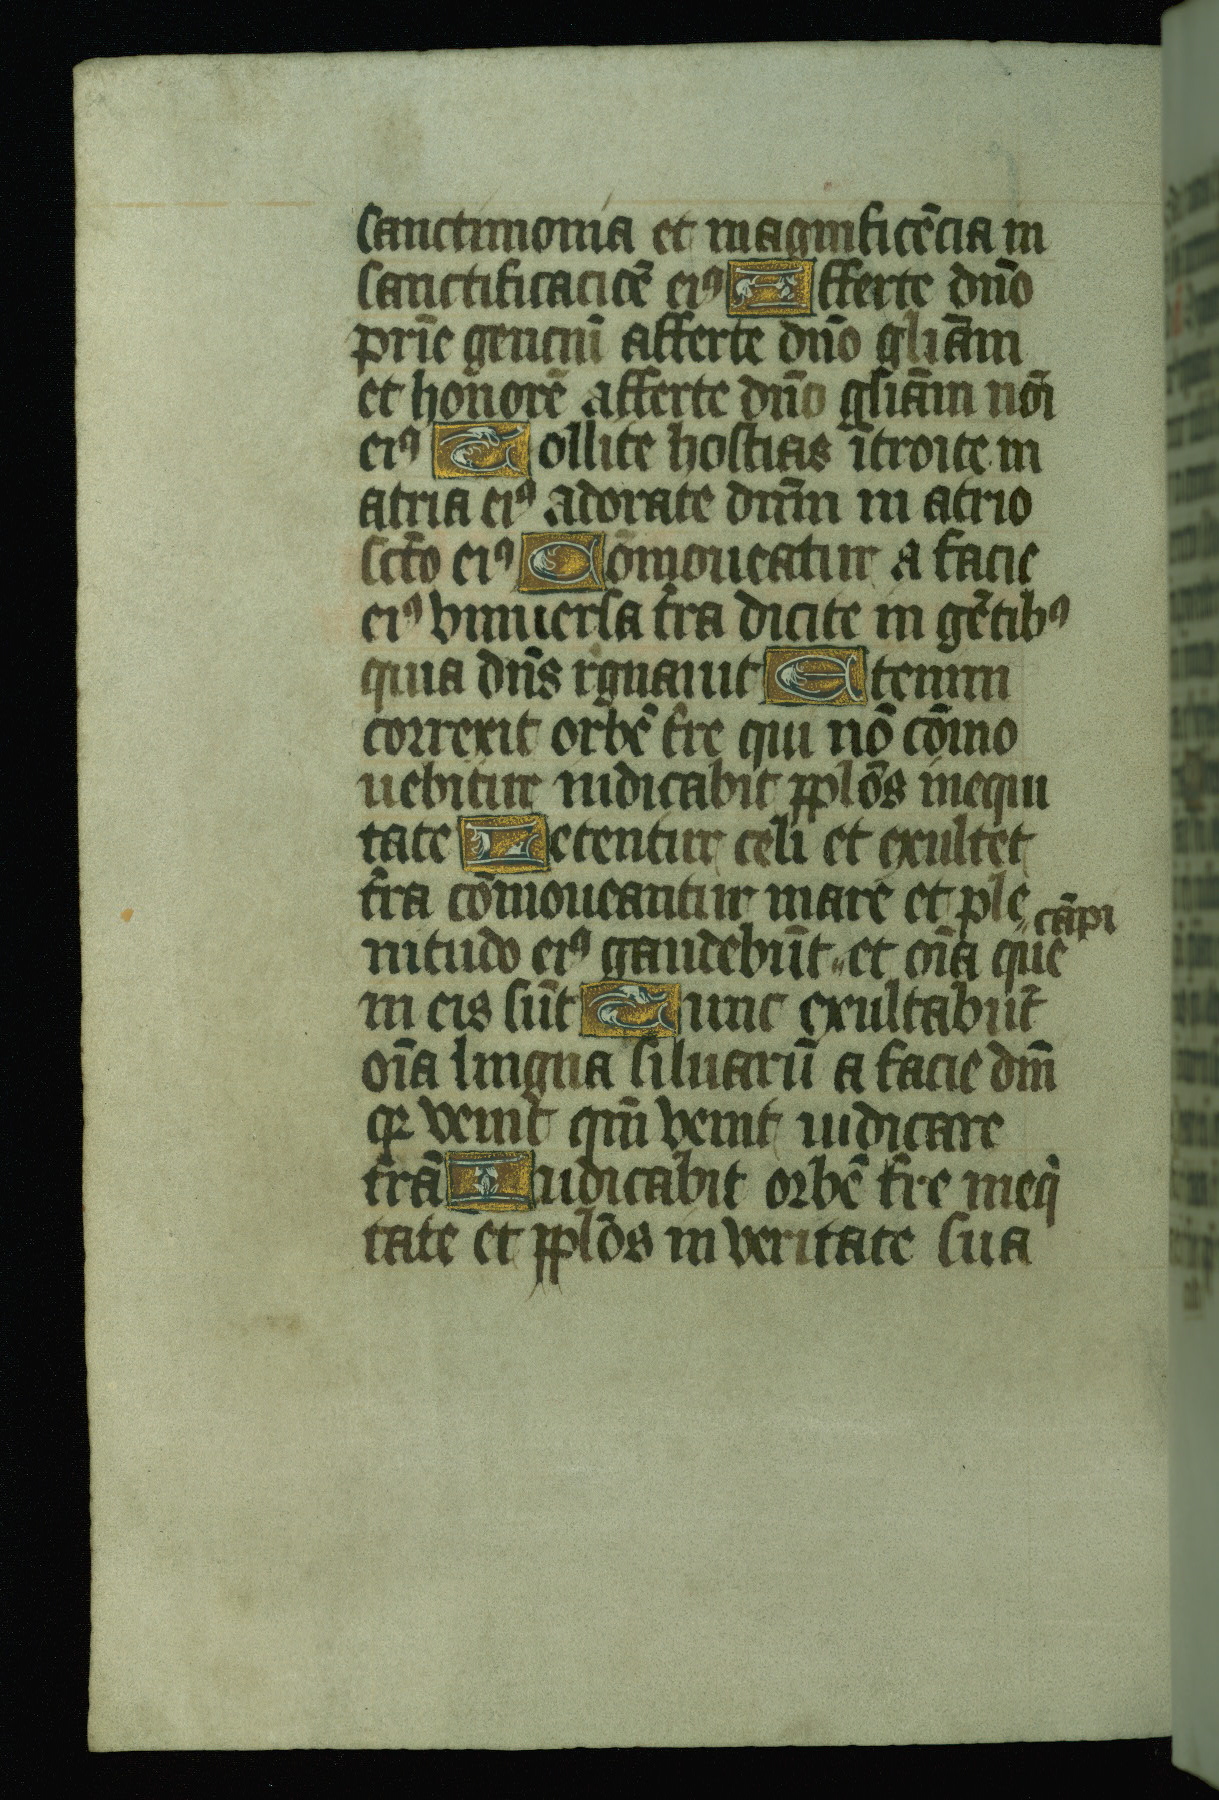 sanctimonia et magnificēcia in
sanctificacicē eiꝰ Afferte dn̄o
prīe genciū afferte dn̄o gli̅am
et honorē afferte dn̄o gli̅am nōi
eiꝰ Tollite hostias ītroite in
atria eiꝰ adorate dn̄m in atrio
sct̄o eiꝰ Cōmoueatur a facie
eiꝰ vniuersa t̄ra dicite in gētibꝰ
quia dn̄s rᷤgnauit Etenim
correxit orbē t̄re qui nō cōmo
uebitur iudicabit pplōs inequi
tate Letentur celi et exultet
t̄ra cōmoueantur mare et ple
nitudo eiꝰ gaudebūt〃et oīa que 〃cāpi
in eis sūt Tunc exultabūt
oīa lingna siluarū a facie dn̄i
qꝛ venit qm̄ venit iudicare
t̄rā Iudicabit orbē t̄re ineqⁱ
tate et pplōs in veritate sua